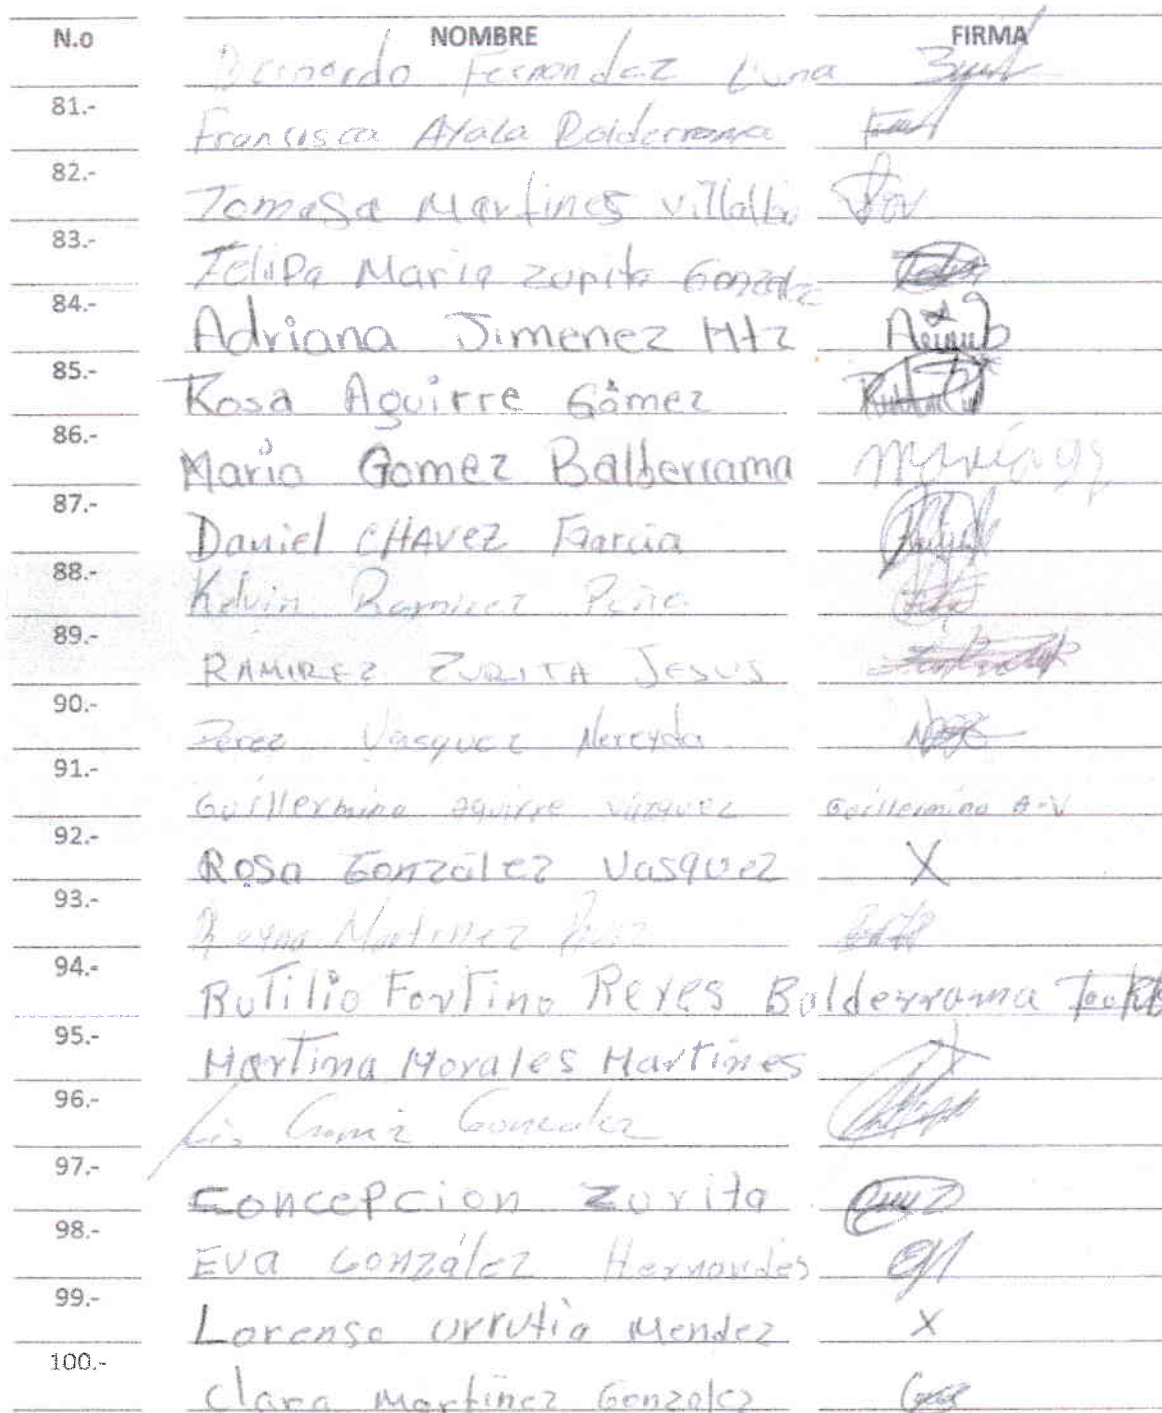 N.o NOMBRE FIRMA
Bernardo Fernandez Luna
81.-
Francisca Ayala Balderrama
82.-
Tomasa Martines villalba
83.-
Felipa Maria zurita Gonzalez
84.-
Adriana Jimenez Mtz
85.-
Rosa Aguirre Gómez
86.-
Mario Gomez Balderrama
87.-
Daniel CHAVEZ Garcia
88.-
Kelvin Ramirez Peña
89.-
RAMIREZ ZURITA JESUS
90.-
Perez Vasquez Nereyda
91.-
Guillermina aguirre vázquez Guillermina A-V
92.-
Rosa González Vasquez X
93.-
Reyna Martinez
94.-
Rutilio Fortino Reyes Balderrama
95.-
Martina Morales Martines
96.-
Gomez Gonzalez
97.-
Concepcion Zurita
98.-
Eva González Hernandes
99.-
Lorenso urrutia Mendez X
100.-
Clara Martinez Gonzalez